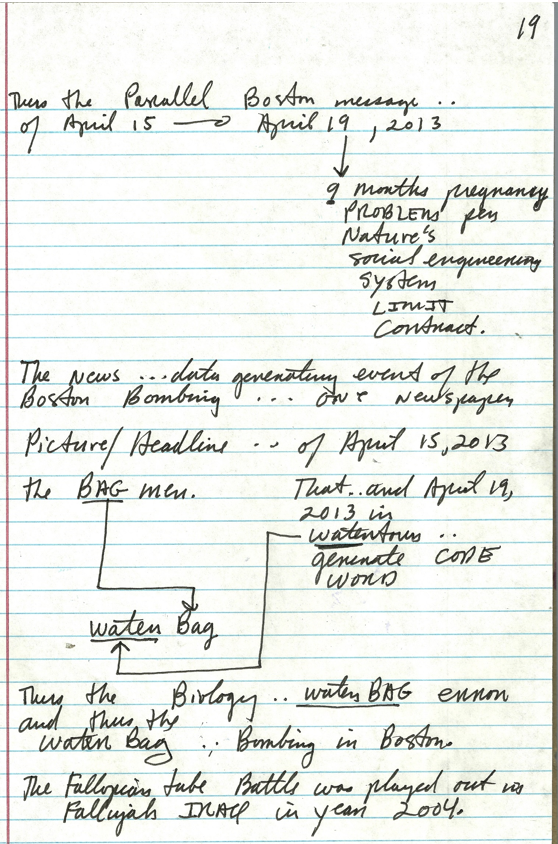 19
Thus the Parallel Boston message ..
of April 15 → April 19, 2013
9 months pregnancy
PROBLEMS per
Nature's
social engineering
System
LIMIT
Contract.
The News ... data generating event of the
Boston Bombing ... one newspaper
Picture/Headline ... of April 15, 2013
the BAG men.
That .. and April 19,
2013 in
watertown ..
generate CODE
WORD
water Bag
Thus the Biology .. water BAG error
and thus the
water Bag .. Bombing in Boston.
The Fallopian tube Battle was played out in
Fallujah IRAQ in year 2004.